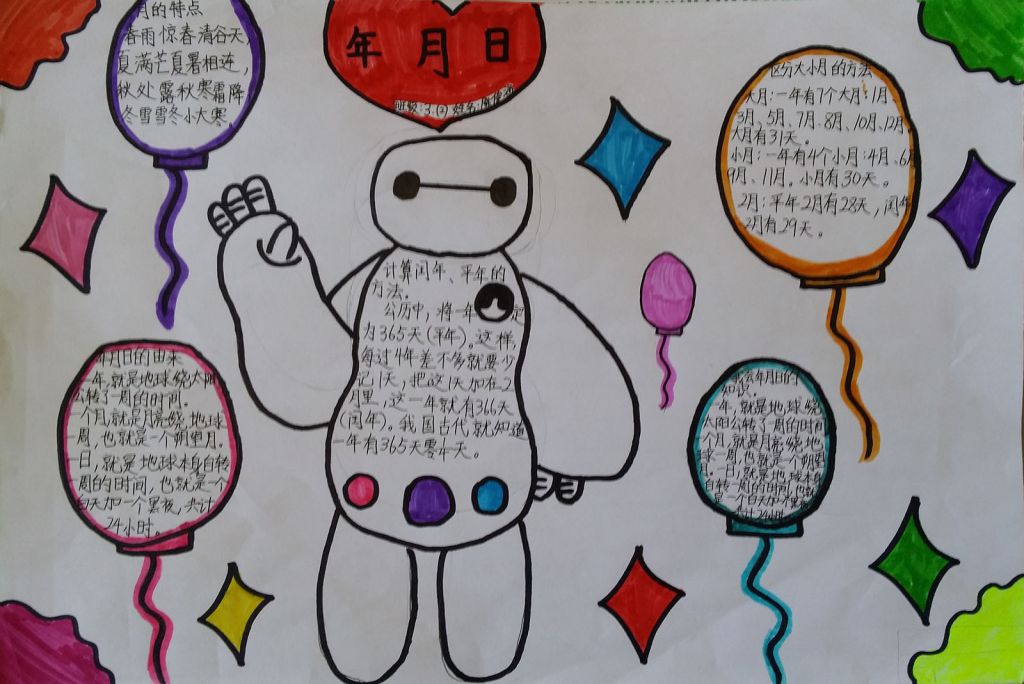 年 月 日
月的特点
春雨惊春清谷天,
夏满芒夏暑相连,
秋处露秋寒霜降
冬雪雪冬小大寒。
区分大小月的方法
大月:一年有7个大月:1月、
3月、5月、7月、8月、10月、12月
大月有31天。
小月:一年有4个小月:4月、6月
9月、11月。小月有30天。
2月:平年2月有28天,闰年
2月有29天。
计算闰年、平年的
方法。
公历中,将一年定
为365天(平年)。这样,
每过4年差不多就要少
记1天,把这1天加在2
月里,这一年就有366天
(闰年)。我国古代就知道
一年有365天零 天。
年月日的由来
一年,就是地球绕太阳
公转了一周的时间。
一个月,就是月亮绕地球
一周,也就是一个朔望月。
一日,就是地球本身自转
一周的时间,也就是一个
白天加一个黑夜,共计
24小时。
年月日的
知识。
一年,就是地球绕
太阳公转了一周的时间
个月,就是月亮绕地
球一周,也就是一个朔望
月。一日,就是地球本身
自转一周的时间,也就
是一个白天加一个黑夜
共计24小时